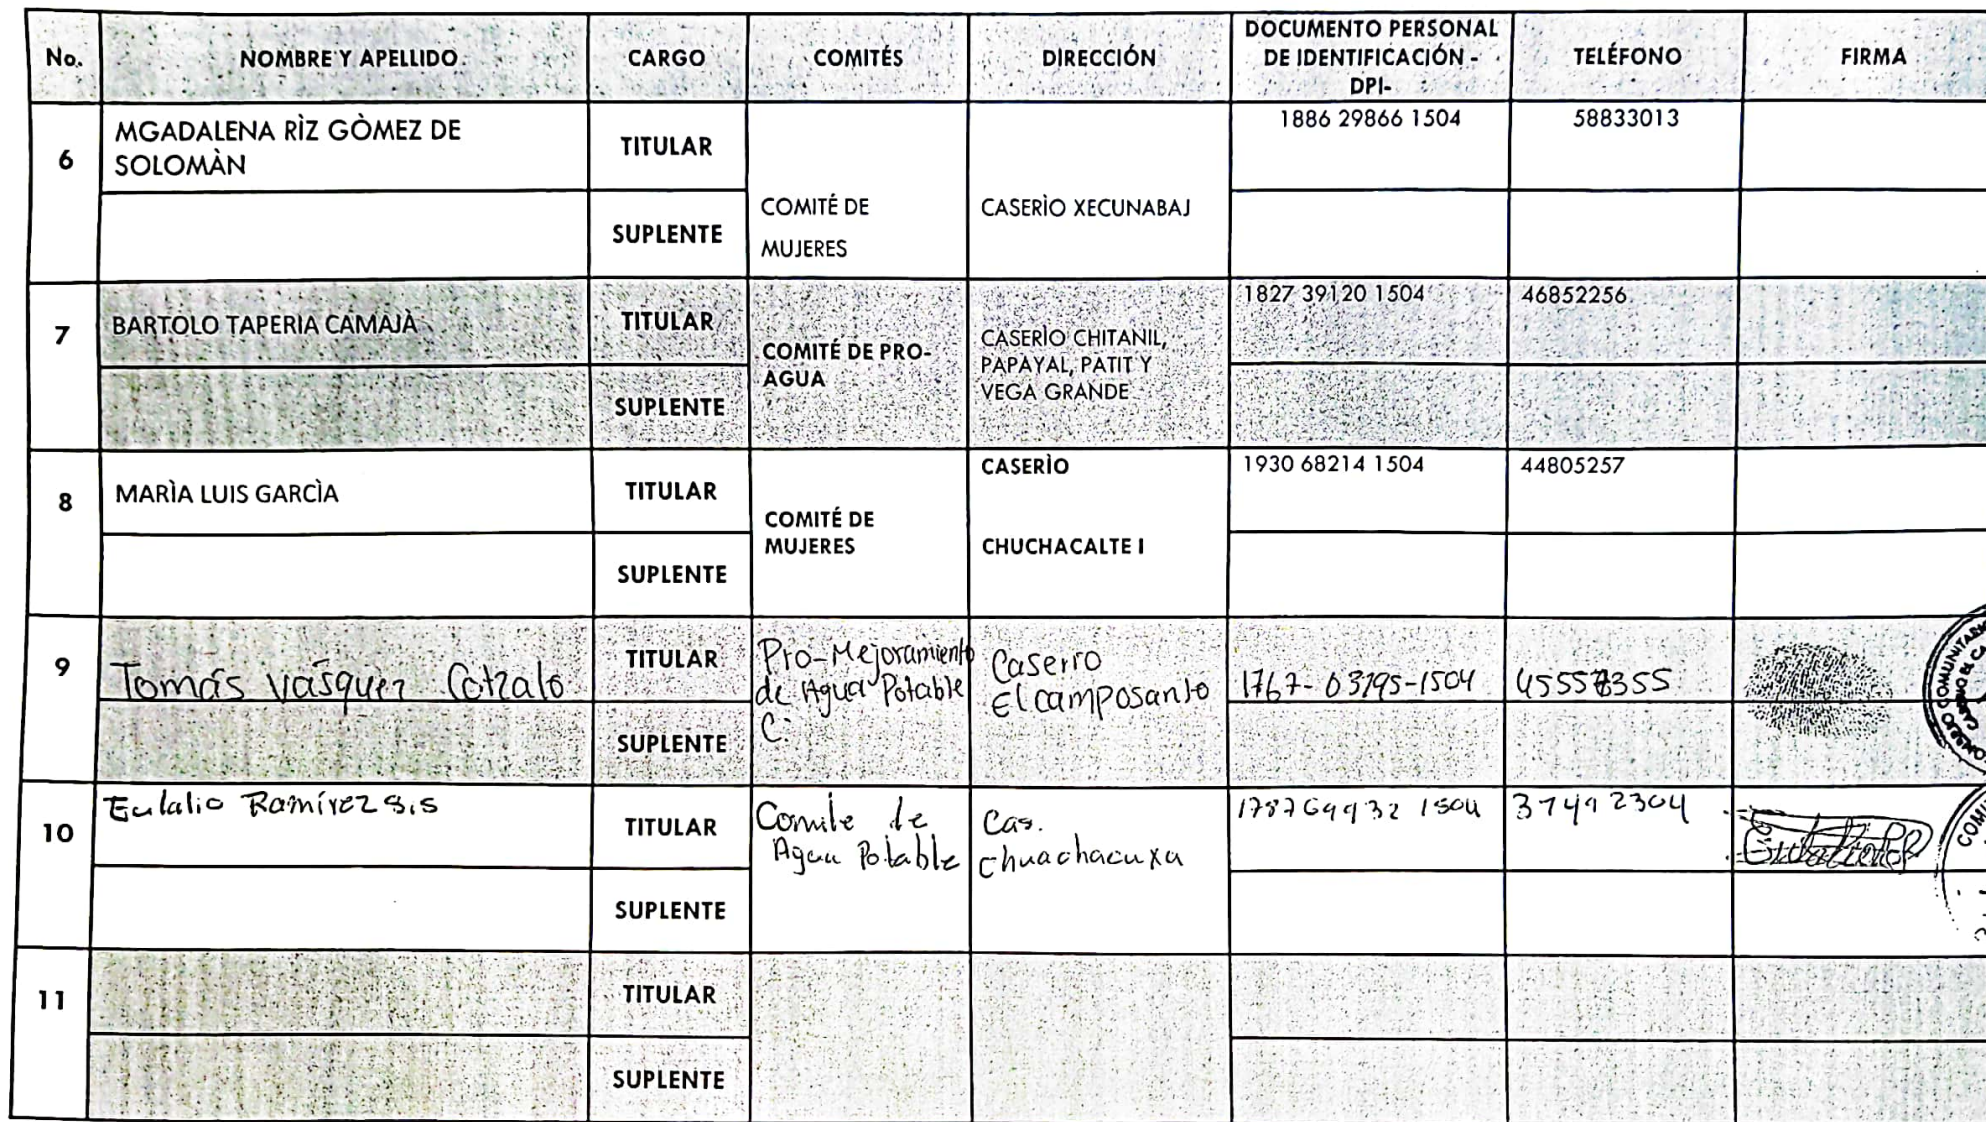 No. NOMBRE Y APELLIDO. CARGO COMITÉS DIRECCIÓN DOCUMENTO PERSONAL DE IDENTIFICACIÓN - DPI- TELÉFONO FIRMA
6
MGADALENA RÌZ GÒMEZ DE
SOLOMÀN
TITULAR
SUPLENTE
COMITÉ DE
MUJERES
CASERÌO XECUNABAJ
1886 29866 1504
58833013
7
BARTOLO TAPERIA CAMAJÀ
TITULAR
SUPLENTE
COMITÉ DE PRO-
AGUA
CASERÌO CHITANIL,
PAPAYAL, PATIT Y
VEGA GRANDE
1827 39120 1504
46852256
8
MARÌA LUIS GARCÌA
TITULAR
SUPLENTE
COMITÉ DE
MUJERES
CASERÌO
CHUCHACALTE I
1930 68214 1504
44805257
9
Tomás Vásquez
TITULAR
SUPLENTE
Pro-Mejoramiento
de Agua Potable
C.
Caserio
El camposanto
1767- 03795-1504
10
Eulalio Ramírez Sis
TITULAR
SUPLENTE
Comite de
Agua Potable
Cas.
Chuachacuxa
1787 69932 1504
37492304
11
TITULAR
SUPLENTE